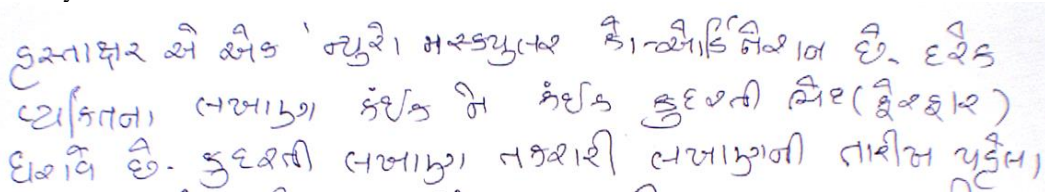 હસ્તાક્ષર એ એક ન્યુરો મસ્ક્યુલર કો-ઓર્ડિનેશન છે. દરેક
વ્યકિતના લખાણ કંઈક ને કંઈક કુદરતી ભેદ (ફેરફાર)
ધરાવે છે. કુદરતી લખાણ તકરારી લખાણની તારીખ પહેલા